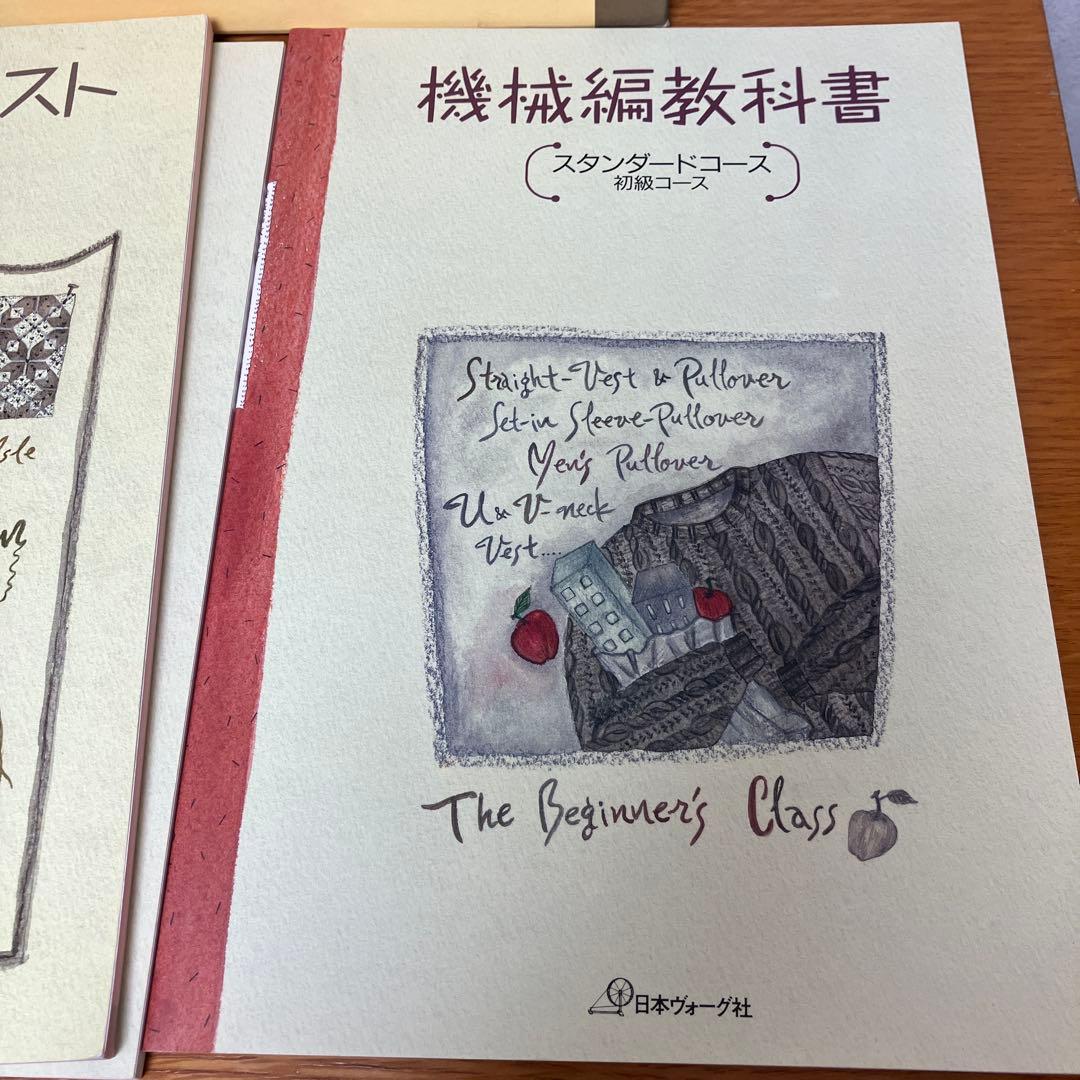 スト
sle
機械編教科書
スタンダードコース
初級コース
Straight-Vest & Pullover
Set-in Sleeve-Pullover
Men's Pullover
U & V-neck
Vest....
The Beginner's Class
日本ヴォーグ社